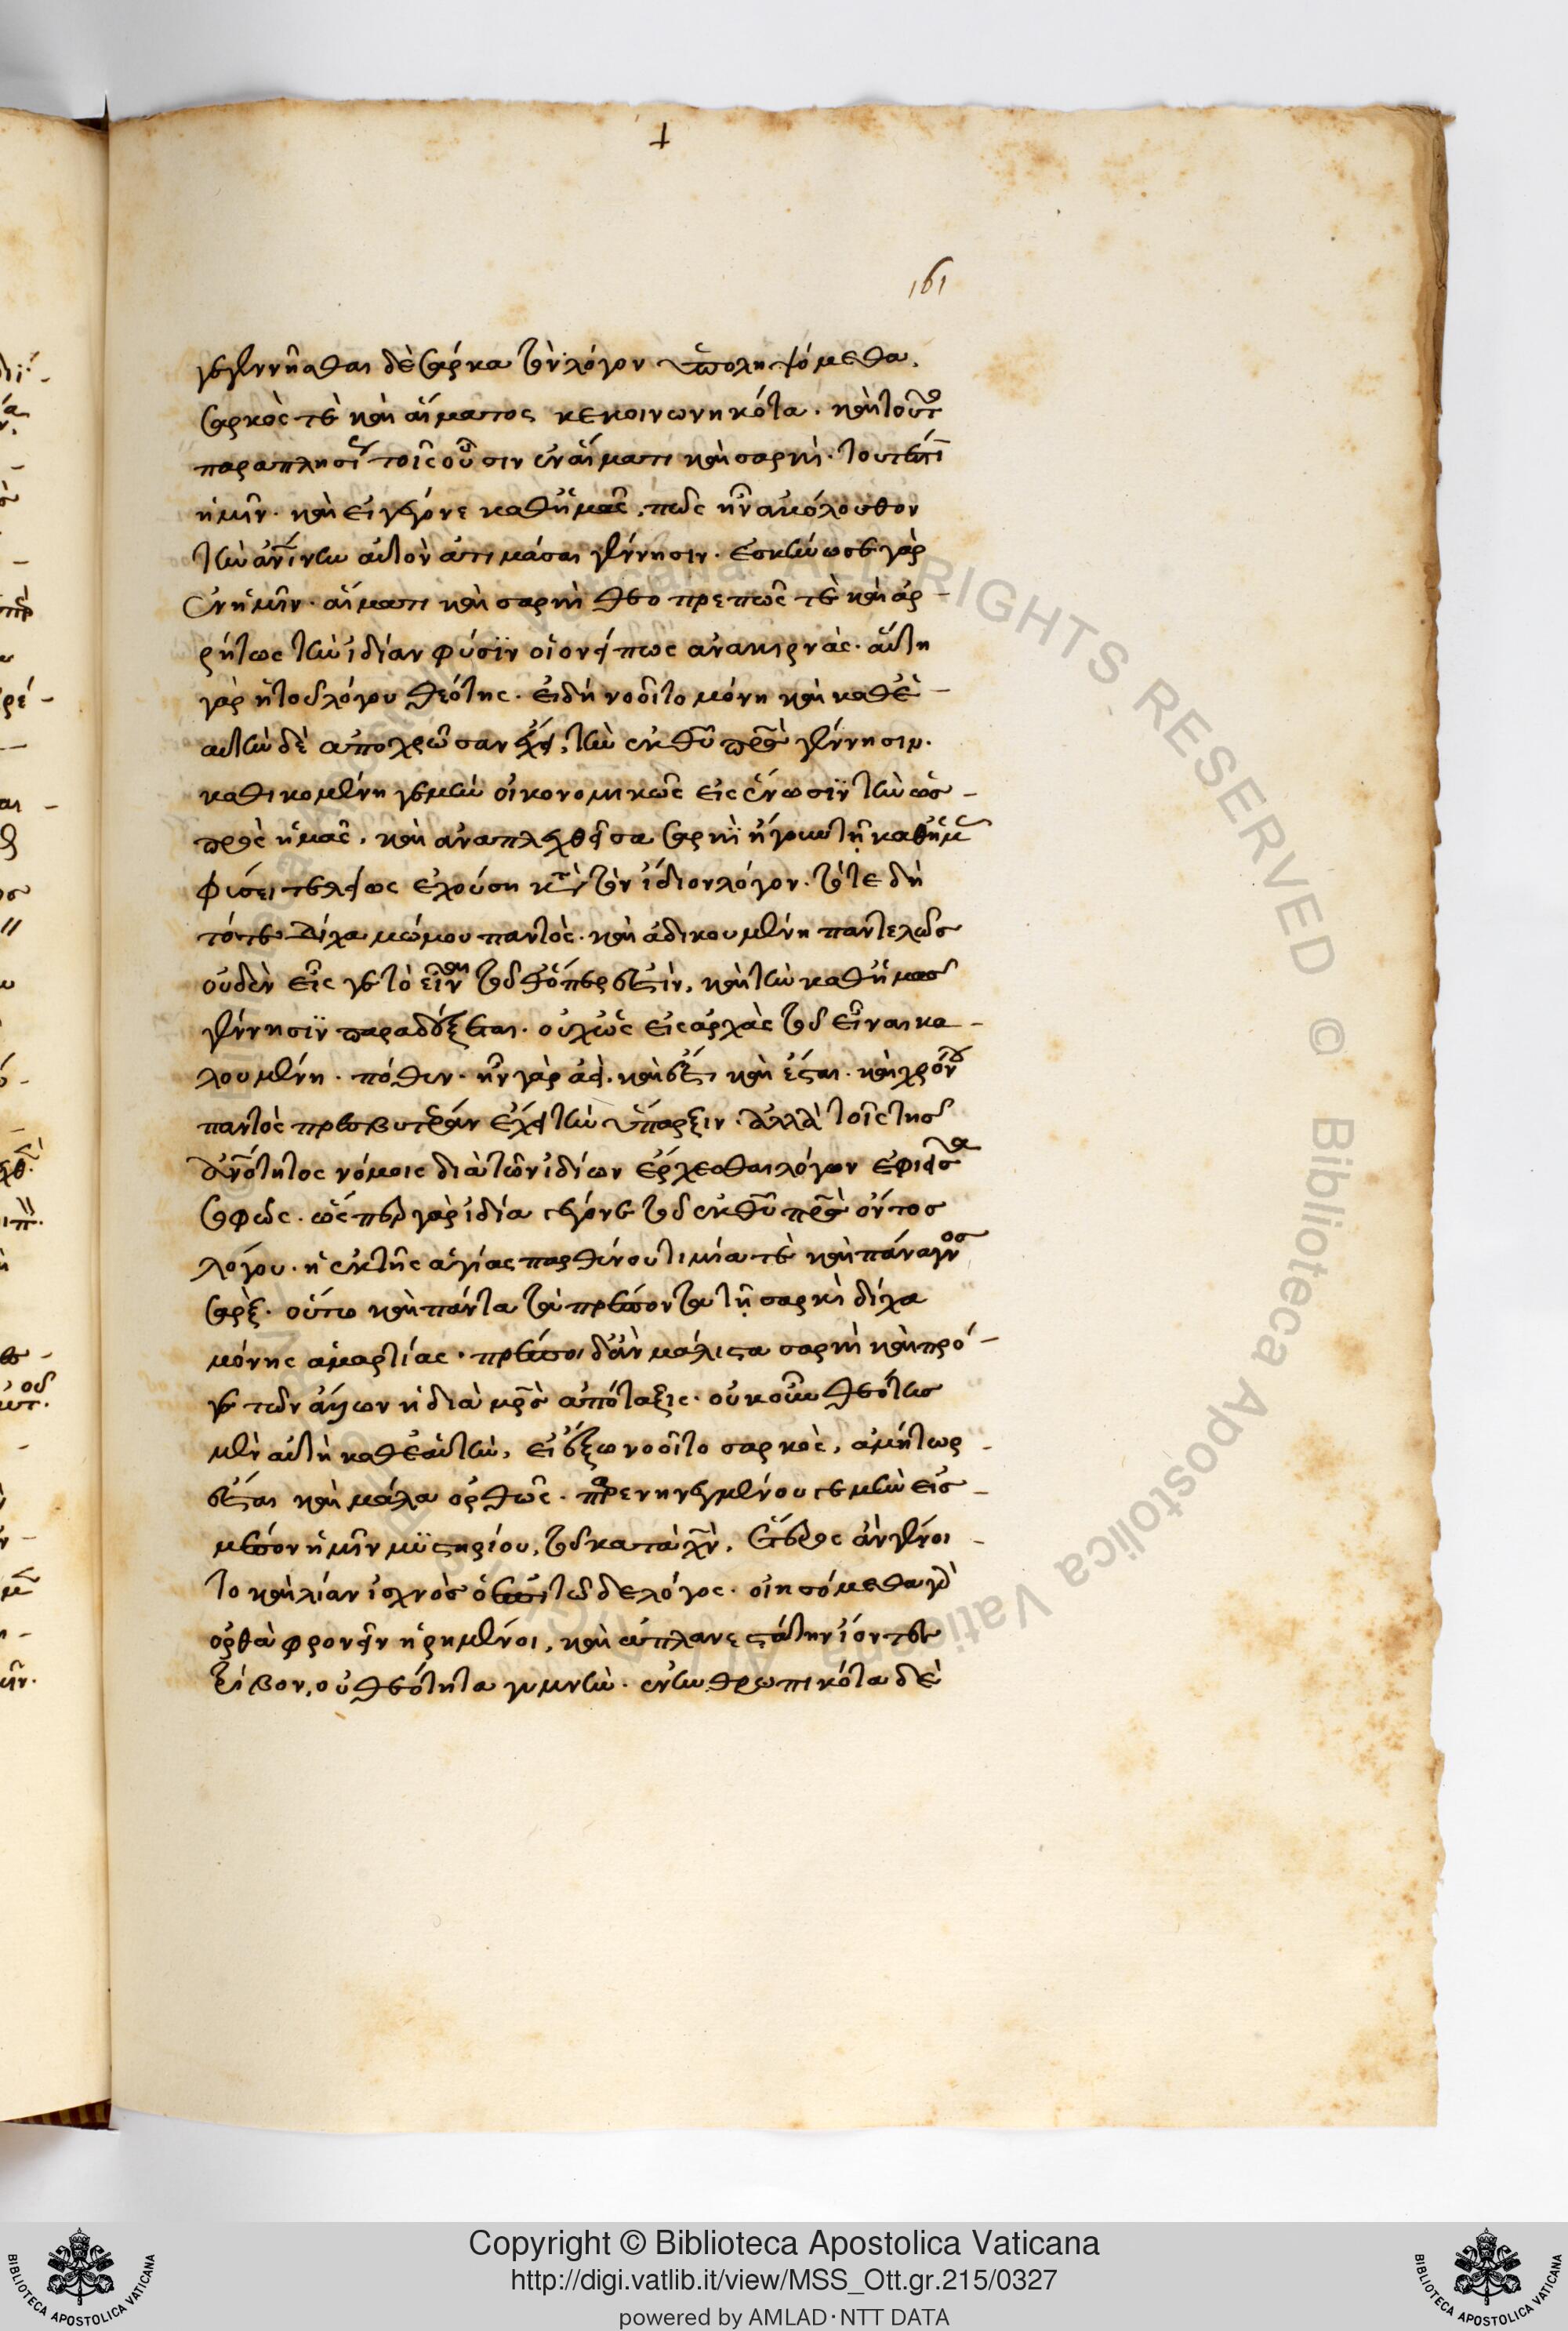 161
γεγεννῆσθαι δὲ σάρκα τὸν λόγον ὑποληψόμεθα.
σαρκός τε καὶ αἵματος κεκοινωνηκότα. καὶ τοῦτο
παραπλησίως τοῖς οὖσιν ἐν αἵματι καὶ σαρκὶ. τουτέστιν
ἡμῖν. καὶ εἰ γέγονε καθ' ἡμᾶς, πῶς ἦν ἀκόλουθον
τὴν ἀνθρωπίνην αὐτὸν ἀτιμάσαι γέννησιν. ἐσκήνωσε γὰρ
ἐν ἡμῖν. αἵματι καὶ σαρκὶ θεοπρεπῶς τὲ καὶ ἀρ-
ρήτως τὴν ἰδίαν φύσιν οἱονεί πως ἀνακιρνὰς. αὕτη
γὰρ ἡ τοῦ λόγου θεότης. εἰ δὴ νοοῖτο μόνη καὶ καθ' ἑ-
αυτὴν δὲ ἀποχρῶσαν ἔχει, τὴν ἐκ θεοῦ πατρὸς γέννησιν.
καθικομένη γε μὴν οἰκονομικῶς εἰς ἕνωσιν τὴν ὡς
πρὸς ἡμᾶς, καὶ ἀναπλεχθεῖσα σαρκὶ ἤγουν τῇ καθ' ἡμᾶς
φύσει τελείως ἐχούση κατὰ τὸν ἴδιον λόγον. τότε δὴ
τότε δίχα μώμου παντὸς. καὶ ἀδικουμένη παντελῶς
οὐδὲν εἴς γε τὸ εἶναι τοῦθ' ὅπερ ἐστὶν, καὶ τὴν καθ' ἡμᾶς
γέννησιν παραδέξεται. οὐχ ὡς εἰς ἀρχὰς τοῦ εἶναι κα-
λουμένη. πόθεν. ἦν γὰρ ἀεὶ. καὶ ἔστι καὶ ἔσται. καὶ χρόνου
παντὸς πρεσβυτέραν ἔχει τὴν ὕπαρξιν. ἀλλὰ τοῖς τῆς
ἀνθρωπότητος νόμοις διὰ τῶν ἰδίων ἔρχεσθαι λόγων ἐφιεῖσα
σαφῶς. ὥσπερ γὰρ ἰδία γέγονε τοῦ ἐκ θεοῦ πατρὸς ὄντος
λόγου. ἡ ἐκ τῆς ἁγίας παρθένου τιμία τὲ καὶ πάναγνος
σάρξ. οὕτω καὶ πάντα τὰ πρέποντα τῇ σαρκὶ δίχα
μόνης ἁμαρτίας. πρέποι δ' ἂν μάλιστα σαρκὶ καὶ πρό
γε τῶν ἄλλων ἡ διὰ μητρὸς ἀπότεξις. οὐκοῦν θεότης
μὲν αὐτὴ καθ' ἑαυτὴν, εἰ ἔξω νοοῖτο σαρκὸς, ἀμήτωρ
ἔσται καὶ μάλα ὀρθῶς. παρενηνεγμένου γε μὴν εἰς
μέσον ἡμῖν μυστηρίου, τοῦ κατὰ χριστὸν, ἕτερος ἂν γένοι-
το καὶ λίαν ἰσχνὸς ὁ ἐπὶ τῶδε λόγος. οἰησόμεθα γὰρ
ὀρθὰ φρονεῖν ἡρημένοι, καὶ ἀπλανεστάτην ἰόντες
τρίβον, οὐ θεότητα γυμνὴν. ἐνανθρωπηκότα δὲ